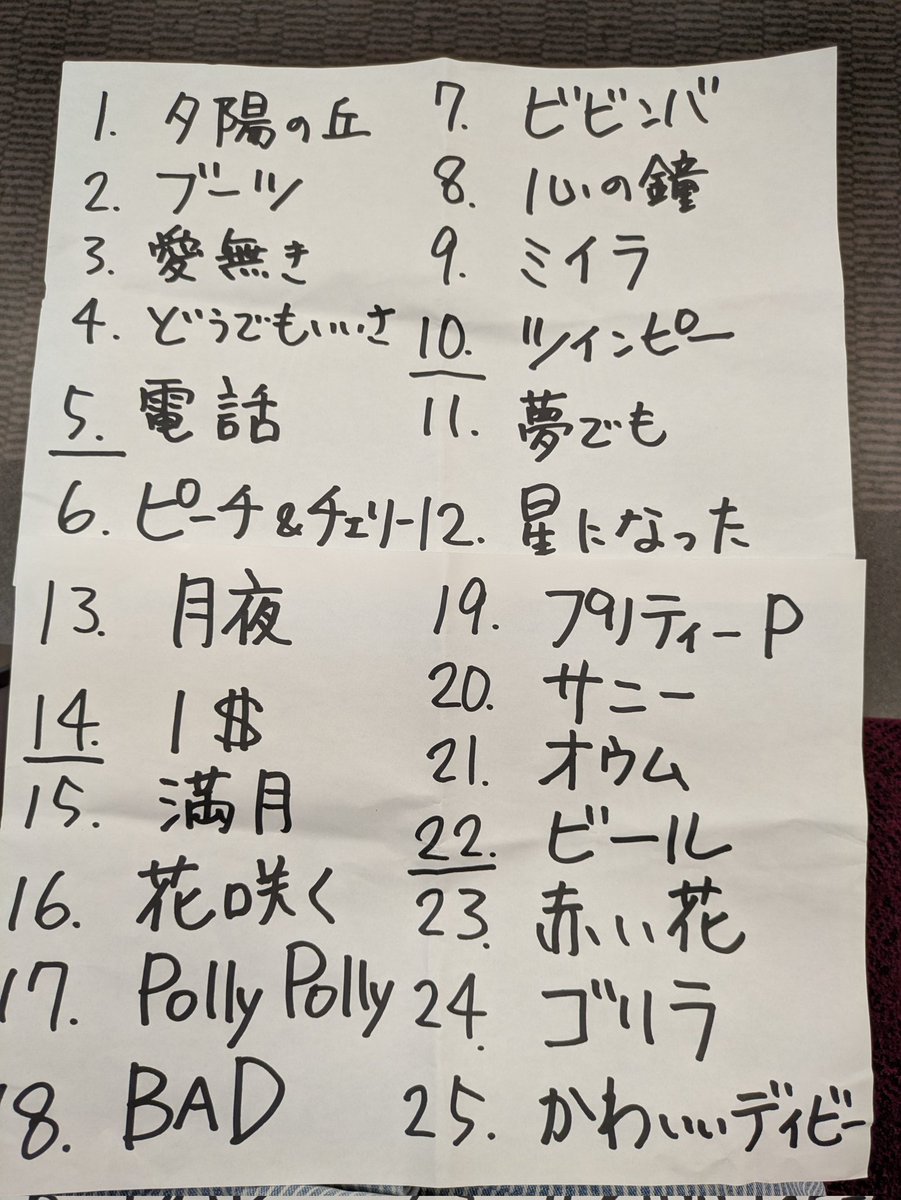 1. 夕陽の丘
2. ブーツ
3. 愛無き
4. どうでもいいさ
5. 電話
6. ピーチ&チェリー
7. ビビンバ
8. 心の鐘
9. ミイラ
10. ツインピー
11. 夢でも
12. 星になった
13. 月夜
14. 1$
15. 満月
16. 花咲く
17. Polly Polly
18. BAD
19. プリティーP
20. サニー
21. オウム
22. ビール
23. 赤い花
24. ゴリラ
25. かわいいディビー